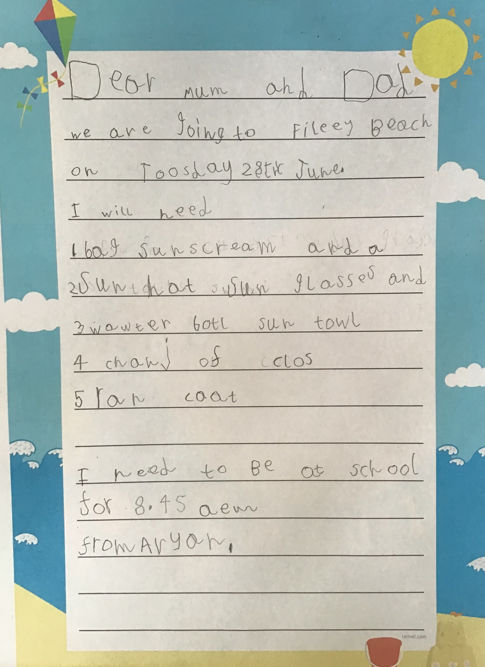 Dear Mum and Dad
we are going to Fileey Beach
on Toosday 28th June.
I will need
1 bag sunscream and a
2 Sun hat sun glasses and
3 wowter botl sun towl
4 chanj of clos
5 ran coat
I need to Be at school
for 8.45 aem
from Aryan.